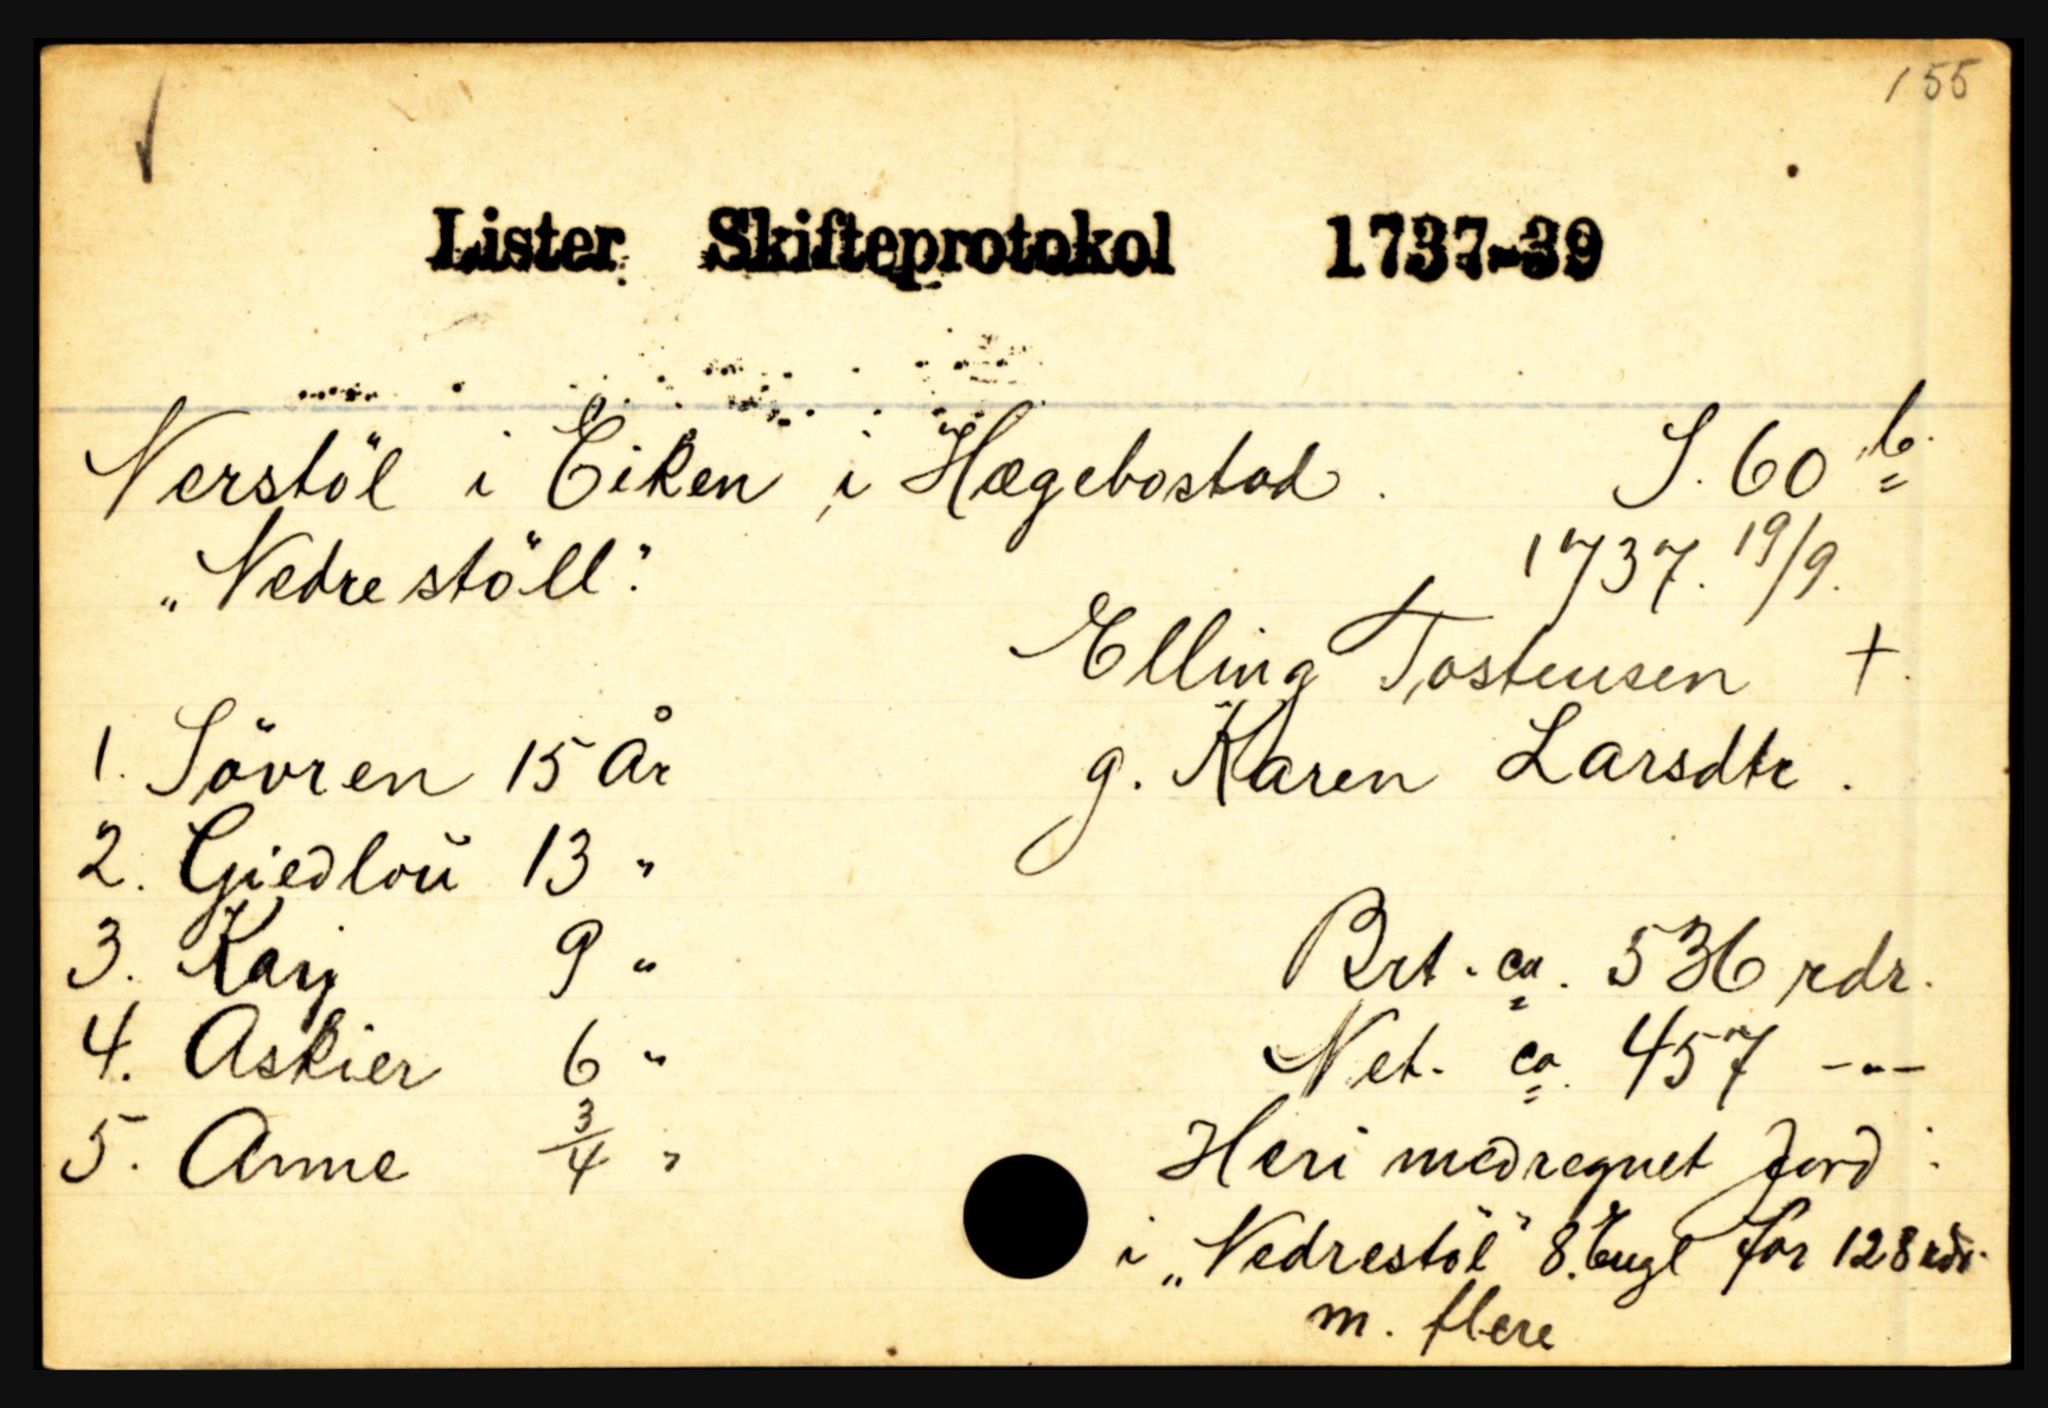 155
Lister Skifteprotokol 1737-39
Nerstöl i Eiken i Hægebostad. S. 60 b
„Nedrestöll". 1737. 19/9.
Elling Tostensen +.
1. Sövren 15 År g. Karen Larsdtr.
2. Giedloŭ 13 "
3. Karj 9 " Brt. ca. 536 rdr.
4. Askier 6 " Net. ca. 457 -"-
5. Anne 3/4 " Heri medregnet Jord:
i „Nedrestöl" 8. Engl for 128 rdr.
m. flere